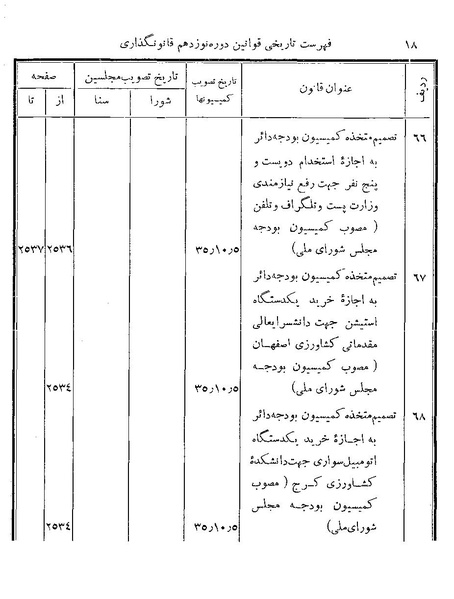 ۱۸ فهرست تاریخی قوانین دوره نوزدهم قانونگذاری
ردیف عنوان قانون تاریخ تصویب کمیسیونها تاریخ تصویب مجلسین صفحه
شورا سنا از تا
۶۶ تصمیم متخذه کمیسیون بودجه دائر
به اجازهٔ استخدام دویست و
پنج نفر جهت رفع نیازمندی
وزارت پست و تلگراف و تلفن
( مصوب کمیسیون بودجه
مجلس شورای ملی) ۳۵٫۱۰٫۵ ۲۵۳۶ ۲۵۳۷
۶۷ تصمیم متخذه کمیسیون بودجه دائر
به اجازهٔ خرید یکدستگاه
استیشن جهت دانشسرایعالی
مقدماتی کشاورزی اصفهان
( مصوب کمیسیون بودجه
مجلس شورای ملی) ۳۵٫۱۰٫۵ ۲۵۳۴
۶۸ تصمیم متخذه کمیسیون بودجه دائر
به اجازهٔ خرید یکدستگاه
اتومبیل سواری جهت دانشکدهٔ
کشاورزی کرج ( مصوب
کمیسیون بودجه مجلس
شورای ملی) ۳۵٫۱۰٫۵ ۲۵۳۴